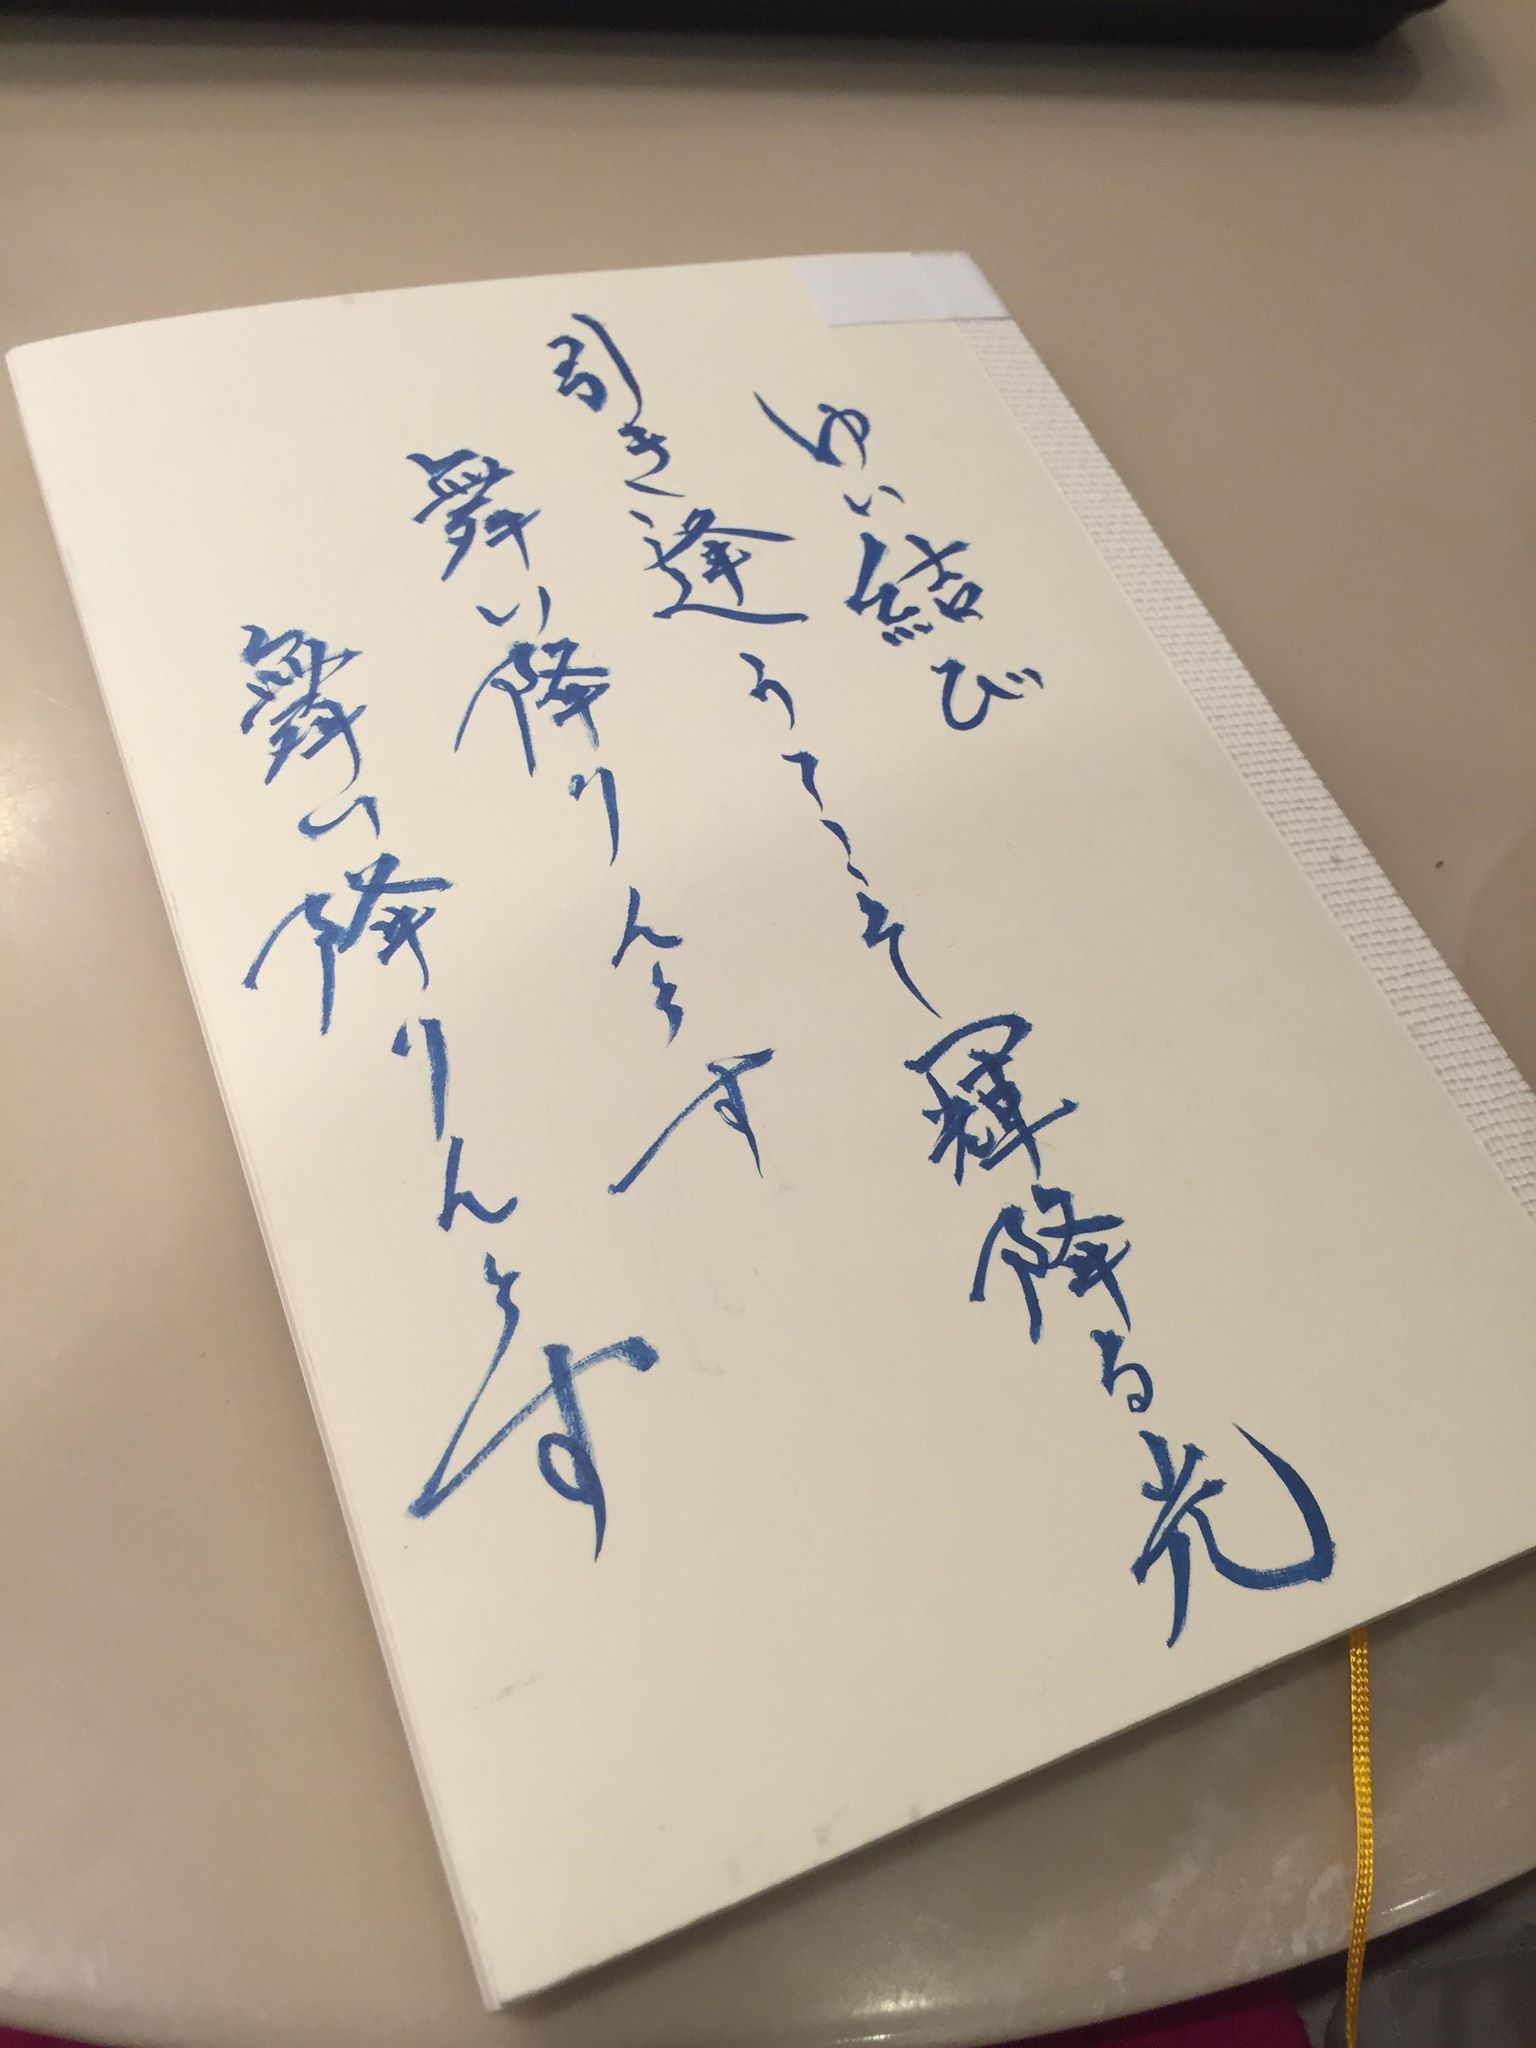 ゆい結び
引き逢うてこそ輝降る光
舞い降りんとす
舞い降りんとす